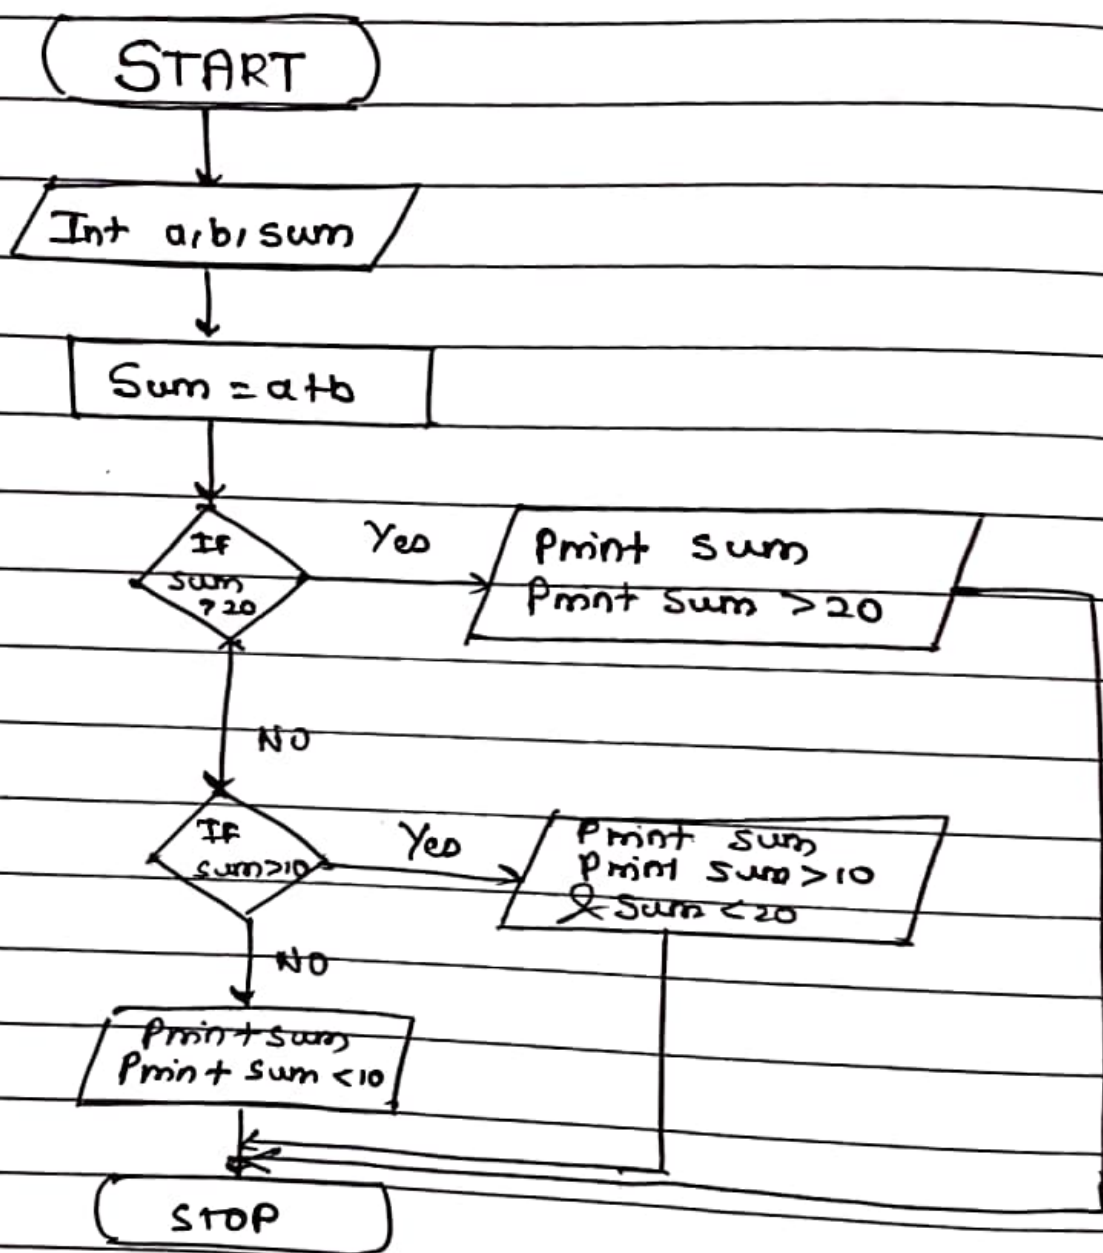 START
Int a, b, sum
Sum = a+b
If
sum
>20
Yes
Print sum
Print sum >20
NO
If
sum>10
Yes
Print sum
Print sum >10
& sum <20
NO
Print sum
Print sum <10
STOP